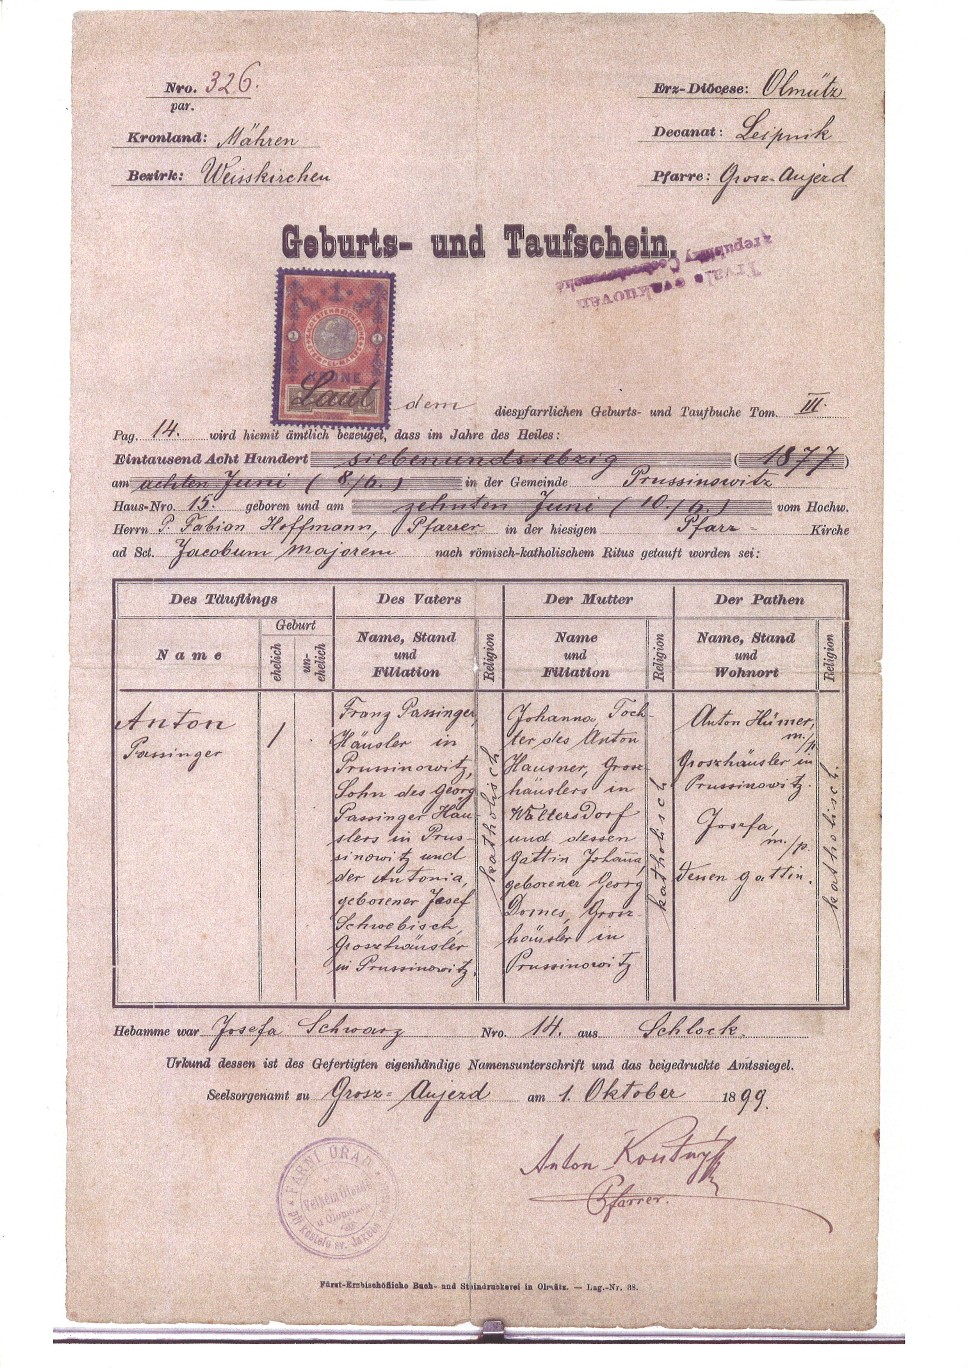 Nro. 326.
par.
Kronland: Mähren
Bezirk: Weisskirchen
Erz-Diöcese: Olmütz
Decanat: Leipnik
Pfarre: Grosz-Aujezd
Geburts- und Taufschein.
Trvale evakuován
republiky Československé
1
1 1
KRONE
Laut dem diespfarrlichen Geburts- und Taufbuche Tom. III.
Pag. 14. wird hiemit ämtlich bezeuget, dass im Jahre des Heiles:
Eintausend Acht Hundert siebenundsiebzig (1877)
am achten Juni (8/6.) in der Gemeinde Prussinowitz
Haus-Nro. 15. geboren und am zehnten Juni (10./6.) vom Hochw.
Herrn P. Fabian Hoffmann, Pfarrer in der hiesigen Pfarr- Kirche
ad Sct. Jacobum majorem nach römisch-katholischem Ritus getauft worden sei:
Des Täuflings
Name
Geburt
ehelich
un-
ehelich
Des Vaters
Name, Stand
und
Filiation
Religion
Der Mutter
Name
und
Filiation
Religion
Der Pathen
Name, Stand
und
Wohnort
Religion
Anton
Passinger
/
Franz Passinger,
Häusler in
Prussinowitz,
Sohn des Georg
Passinger Häu-
slers in Prus-
sinowitz und
der Antonia,
geborener Josef
Schwebisch,
Groszhäusler
in Prussinowitz.
katholisch
Johanna, Toch-
ter des Anton
Hausner, Grosz-
häuslers in
Woltersdorf
und dessen
Gattin Johana,
geborener Georg
Domes, Grosz-
häusler in
Prussinowitz
katholisch
Anton Hümer,
m./p.
Groszhäusler in
Prussinowitz.
Josefa,
m./p.
dessen Gattin.
katholisch.
Hebamme war Josefa Schwarz Nro. 14. aus Schlock.
Urkund dessen ist des Gefertigten eigenhändige Namensunterschrift und das beigedruckte Amtssiegel.
Seelsorgenamt zu Grosz-Aujezd am 1. Oktober 1899.
Anton Koutný
Pfarrer.
FARNÍ ÚŘAD
Velkém Újezdě
u Olomouce
při kostele sv. Jakuba
Fürst-Erzbischöfliche Buch- und Steindruckerei in Olmütz. — Lag.-Nr. 38.